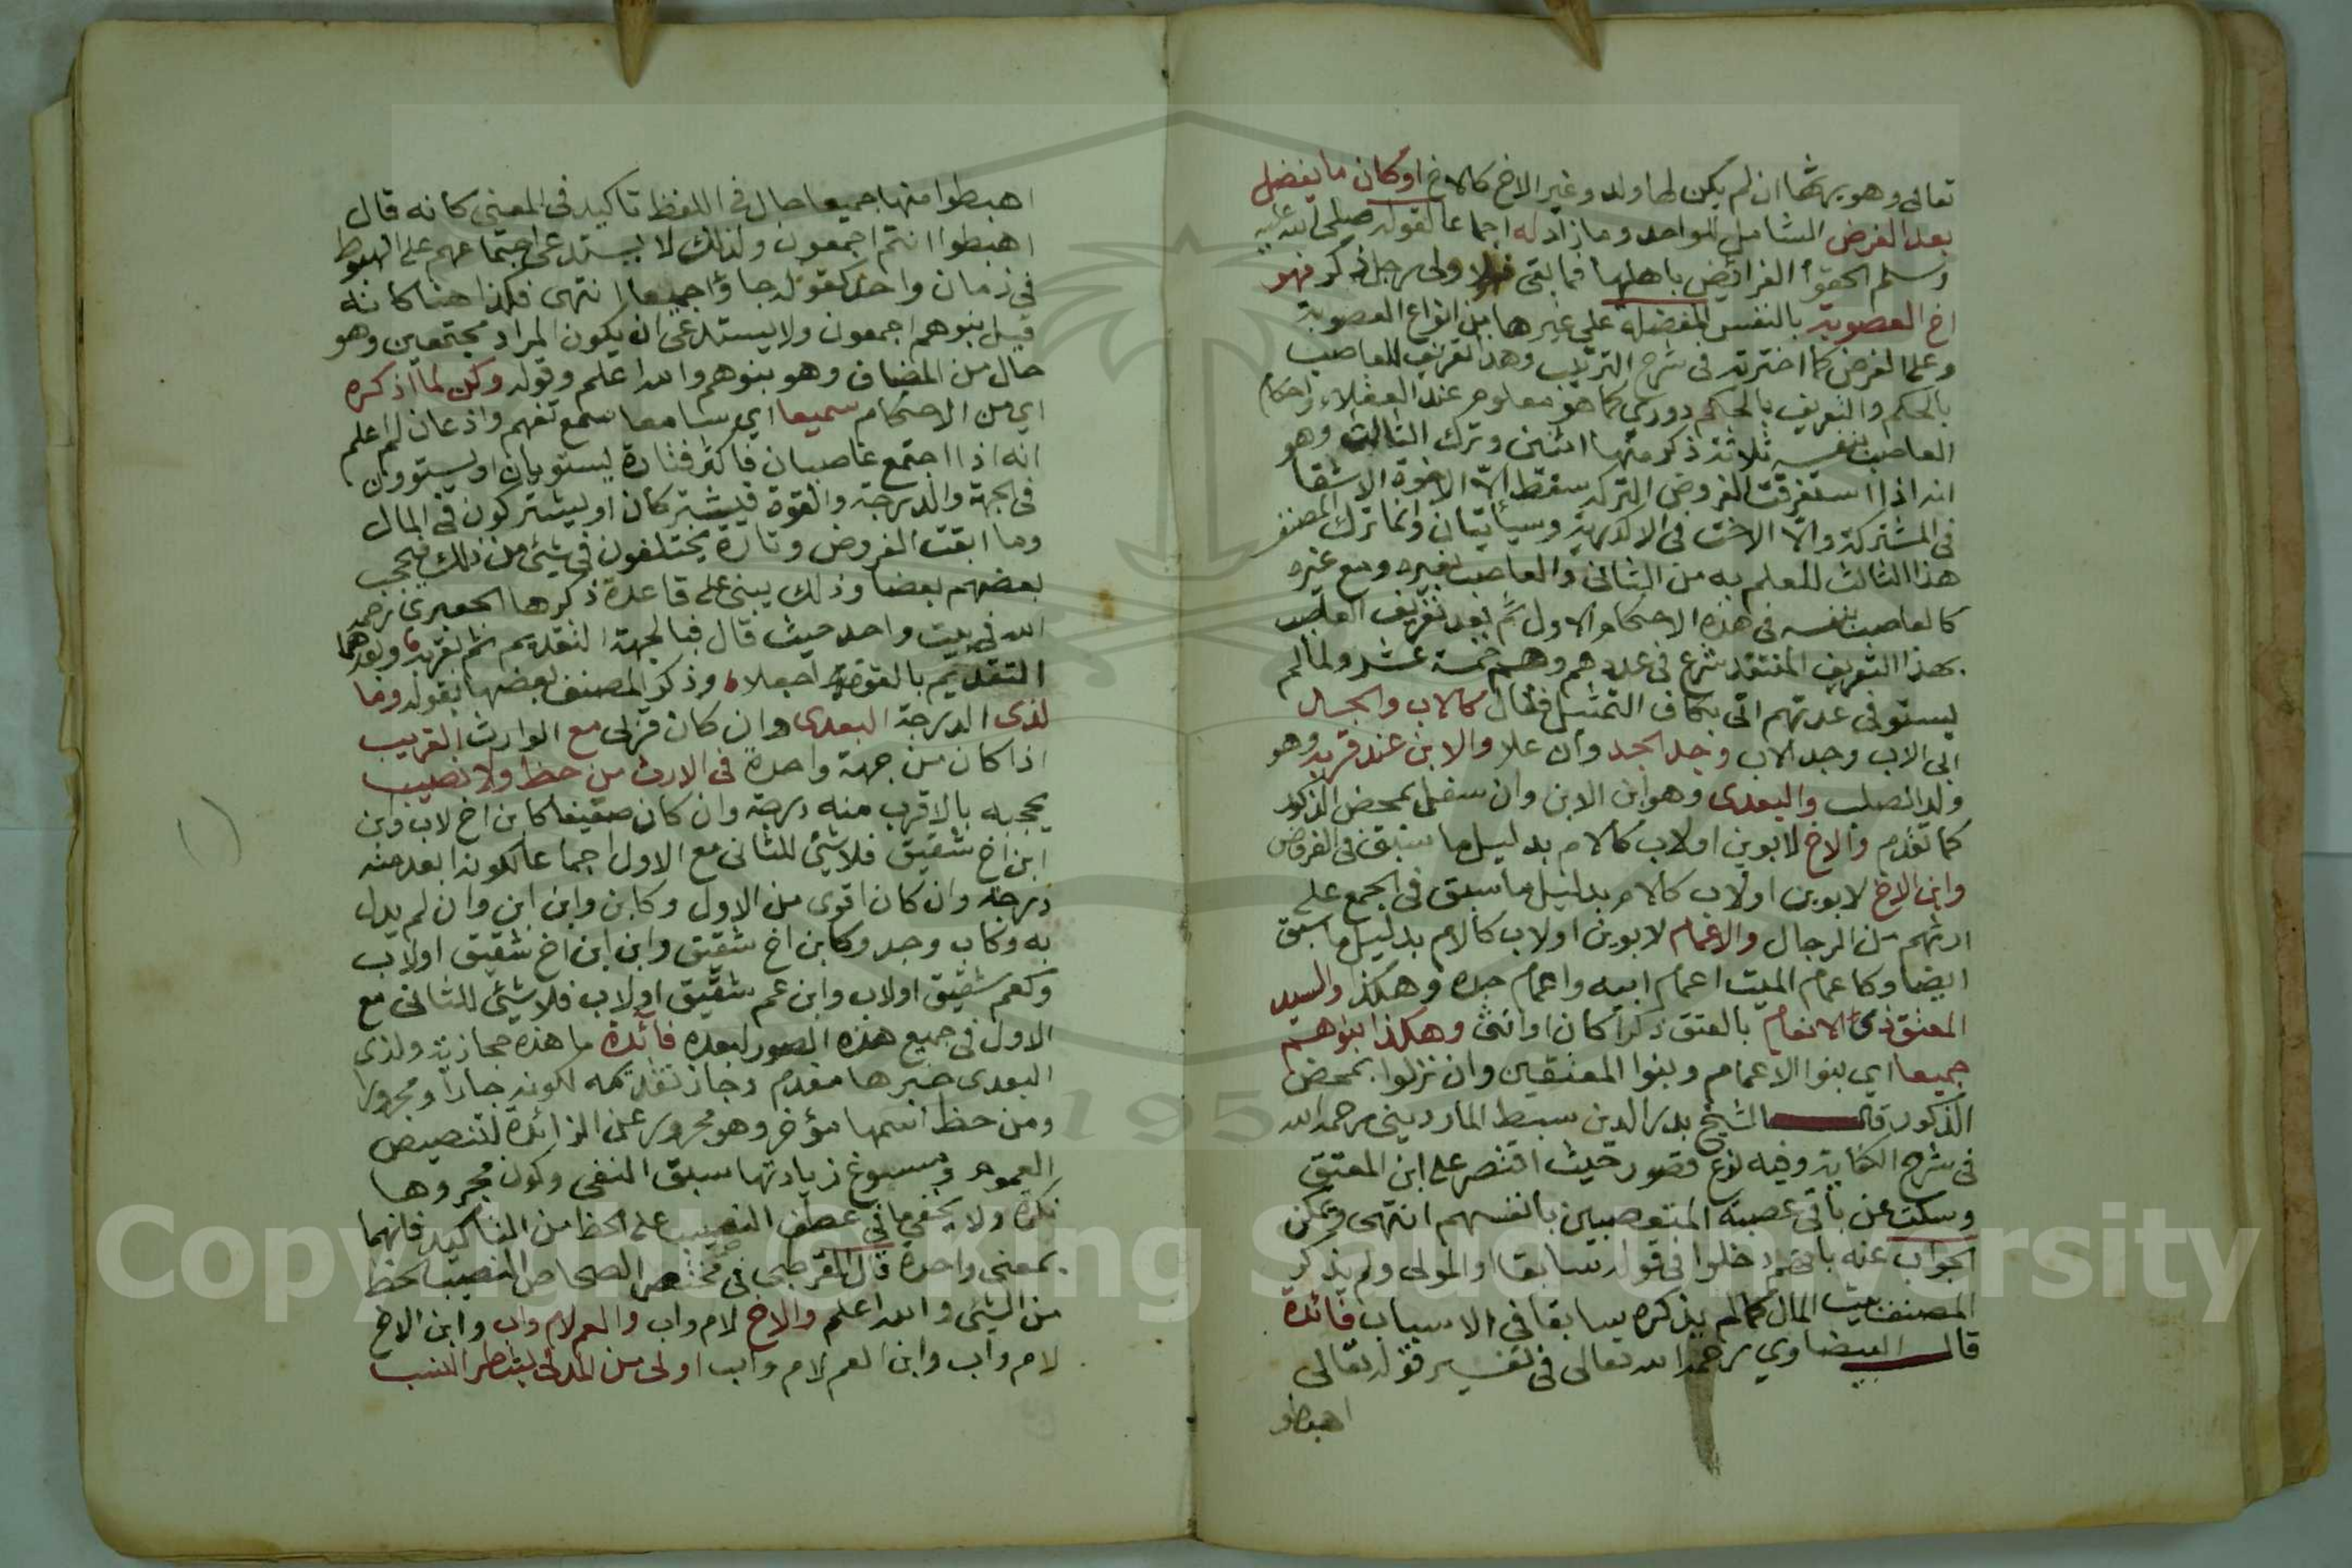 تعالى وهو يرثها ان لم يكن لها ولد وغير الاخ كالاخ او كان ما يفضل
بعد الفرض الشامل للواحد وما زاد له اجماعا لقوله صلى الله عليه
وسلم الحقوا الفرائض باهلها فما بقى فلاولى رجل ذكر فهو
اخ العصوبة بالنفس المفضلة على غيرها من انواع العصوبة
وعلى الفرض كما اخترته فى شرح الترتيب وهذا تعريف للعاصب
بالحكم والتعريف بالحكم دورى كما هو معلوم عند العقلاء واحكام
العاصب بنفسه ثلاثة ذكر منها اثنين وترك الثالث وهو
انه اذا استغرقت الفروض التركة سقط الا الاخوة الاشقا
فى المشتركة والا الاخت فى الاكدرية وسيأتيان وانما ترك المصنف
هذا الثالث للعلم به من الثانى والعاصب بغيره ومع غيره
كالعاصب بنفسه فى هذه الاحكام الاول ثم بعد تعريف العاصب
بهذا التعريف المنتقد شرع فى عددهم وهم خمسة عشر ولما لم
يستوفى عدتهم اتى بكاف التمثيل فقال كالاب والجد
ابى الاب وجد الاب وجد الجد وان علا والابن عند قربه وهو
ولد الصلب والبعدى وهو ابن الابن وان سفل بمحض الذكور
كما تقدم والاخ لابوين او لاب كالام بدليل ما سبق فى الفروض
وابن الاخ لابوين او لاب كالام بدليل ما سبق فى الجمع على
ارثهم من الرجال والاعمام لابوين او لاب كالام بدليل ما سبق
ايضا وكاعمام الميت اعمام ابيه واعمام جده وهكذا والسيد
المعتق ذى الانعام بالعتق ذكرا كان او انثى وهكذا بنوهم
جميعا اي بنوا الاعمام وبنوا المعتقين وان نزلوا بمحض
الذكور قال الشيخ بدر الدين سبط الماردينى رحمه الله
فى شرح الكفاية وفيه نوع قصور حيث اقتصر على ابن المعتق
وسكت عن باقى عصبته المتعصبين بانفسهم انتهى ويمكن
الجواب عنه بانهم دخلوا فى قوله سابقا او المولى ولم يذكر
المصنف بيت المال كما لم يذكره سابقا فى الاسباب فائدة
قال البيضاوي رحمه الله تعالى فى تفسير قوله تعالى
اهبطو
اهبطوا منها جميعا حال فى اللفظ تاكيد فى المعنى كانه قال
اهبطوا انتم اجمعون ولذلك لا يستدعى اجتماعهم على الهبوط
فى زمان واحد كقولك جاؤا جميعا انتهى فكذا هنا كانه
قيل بنوهم اجمعون ولا يستدعى ان يكون المراد مجتمعين وهو
حال من المضاف وهو بنوهم والله اعلم وقوله وكن لما اذكره
اي من الاحكام سميعا اي سامعا سمع تفهم واذعان ثم اعلم
انه اذا اجتمع عاصبان فاكثر فتارة يستويان او يستوون
فى الجهة والدرجة والقوة فيشتركان او يشتركون فى المال
وما ابقت الفروض وتارة يختلفون فى شئ من ذلك فيحجب
بعضهم بعضا وذلك يبنى على قاعدة ذكرها الجعبرى رحمه
الله فى بيت واحد حيث قال فبالجهة التقديم ثم بقربه وبعدهما
التقديم بالقوة اجعلا وذكر المصنف بعضها بقوله وما
لذى الدرجة البعدى وان كان قربى مع الوارث القريب
اذا كان من جهة واحدة فى الارث من حظ ولا نصيب
لحجبه بالاقرب منه درجة وان كان ضعيفا كابن اخ لاب وابن
ابن اخ شقيق فلا شئ للثانى مع الاول اجماعا لكونه ابعد منه
درجة وان كان اقوى من الاول وكابن وابن ابن وان لم يدل
به وكاب وجد وكابن اخ شقيق وابن ابن اخ شقيق او لاب
وكعم شقيق او لاب وابن عم شقيق او لاب فلا شئ للثانى مع
الاول فى جميع هذه الصور لبعده فائدة ما هذه حجازية ولذى
البعدى خبرها مقدم وجاز تقديمه لكونه جارا ومجرورا
ومن حظ اسمها مؤخر وهو مجرور بمن الزائدة لتنصيص
العموم ومسوغ زيادتها سبق النفى وكون مجرورها
نكرة ولا يخفى ما فى عطف النصيب على الحظ من التاكيد فانهما
بمعنى واحدة قال القرطبى فى مختصر الصحاح النصيب الحظ
من الشئ والله اعلم والاخ لام واب والعم لام واب وابن الاخ
لام واب وابن العم لام واب اولى من المدلى بشطر النسب
Copyright © King Saud University
195